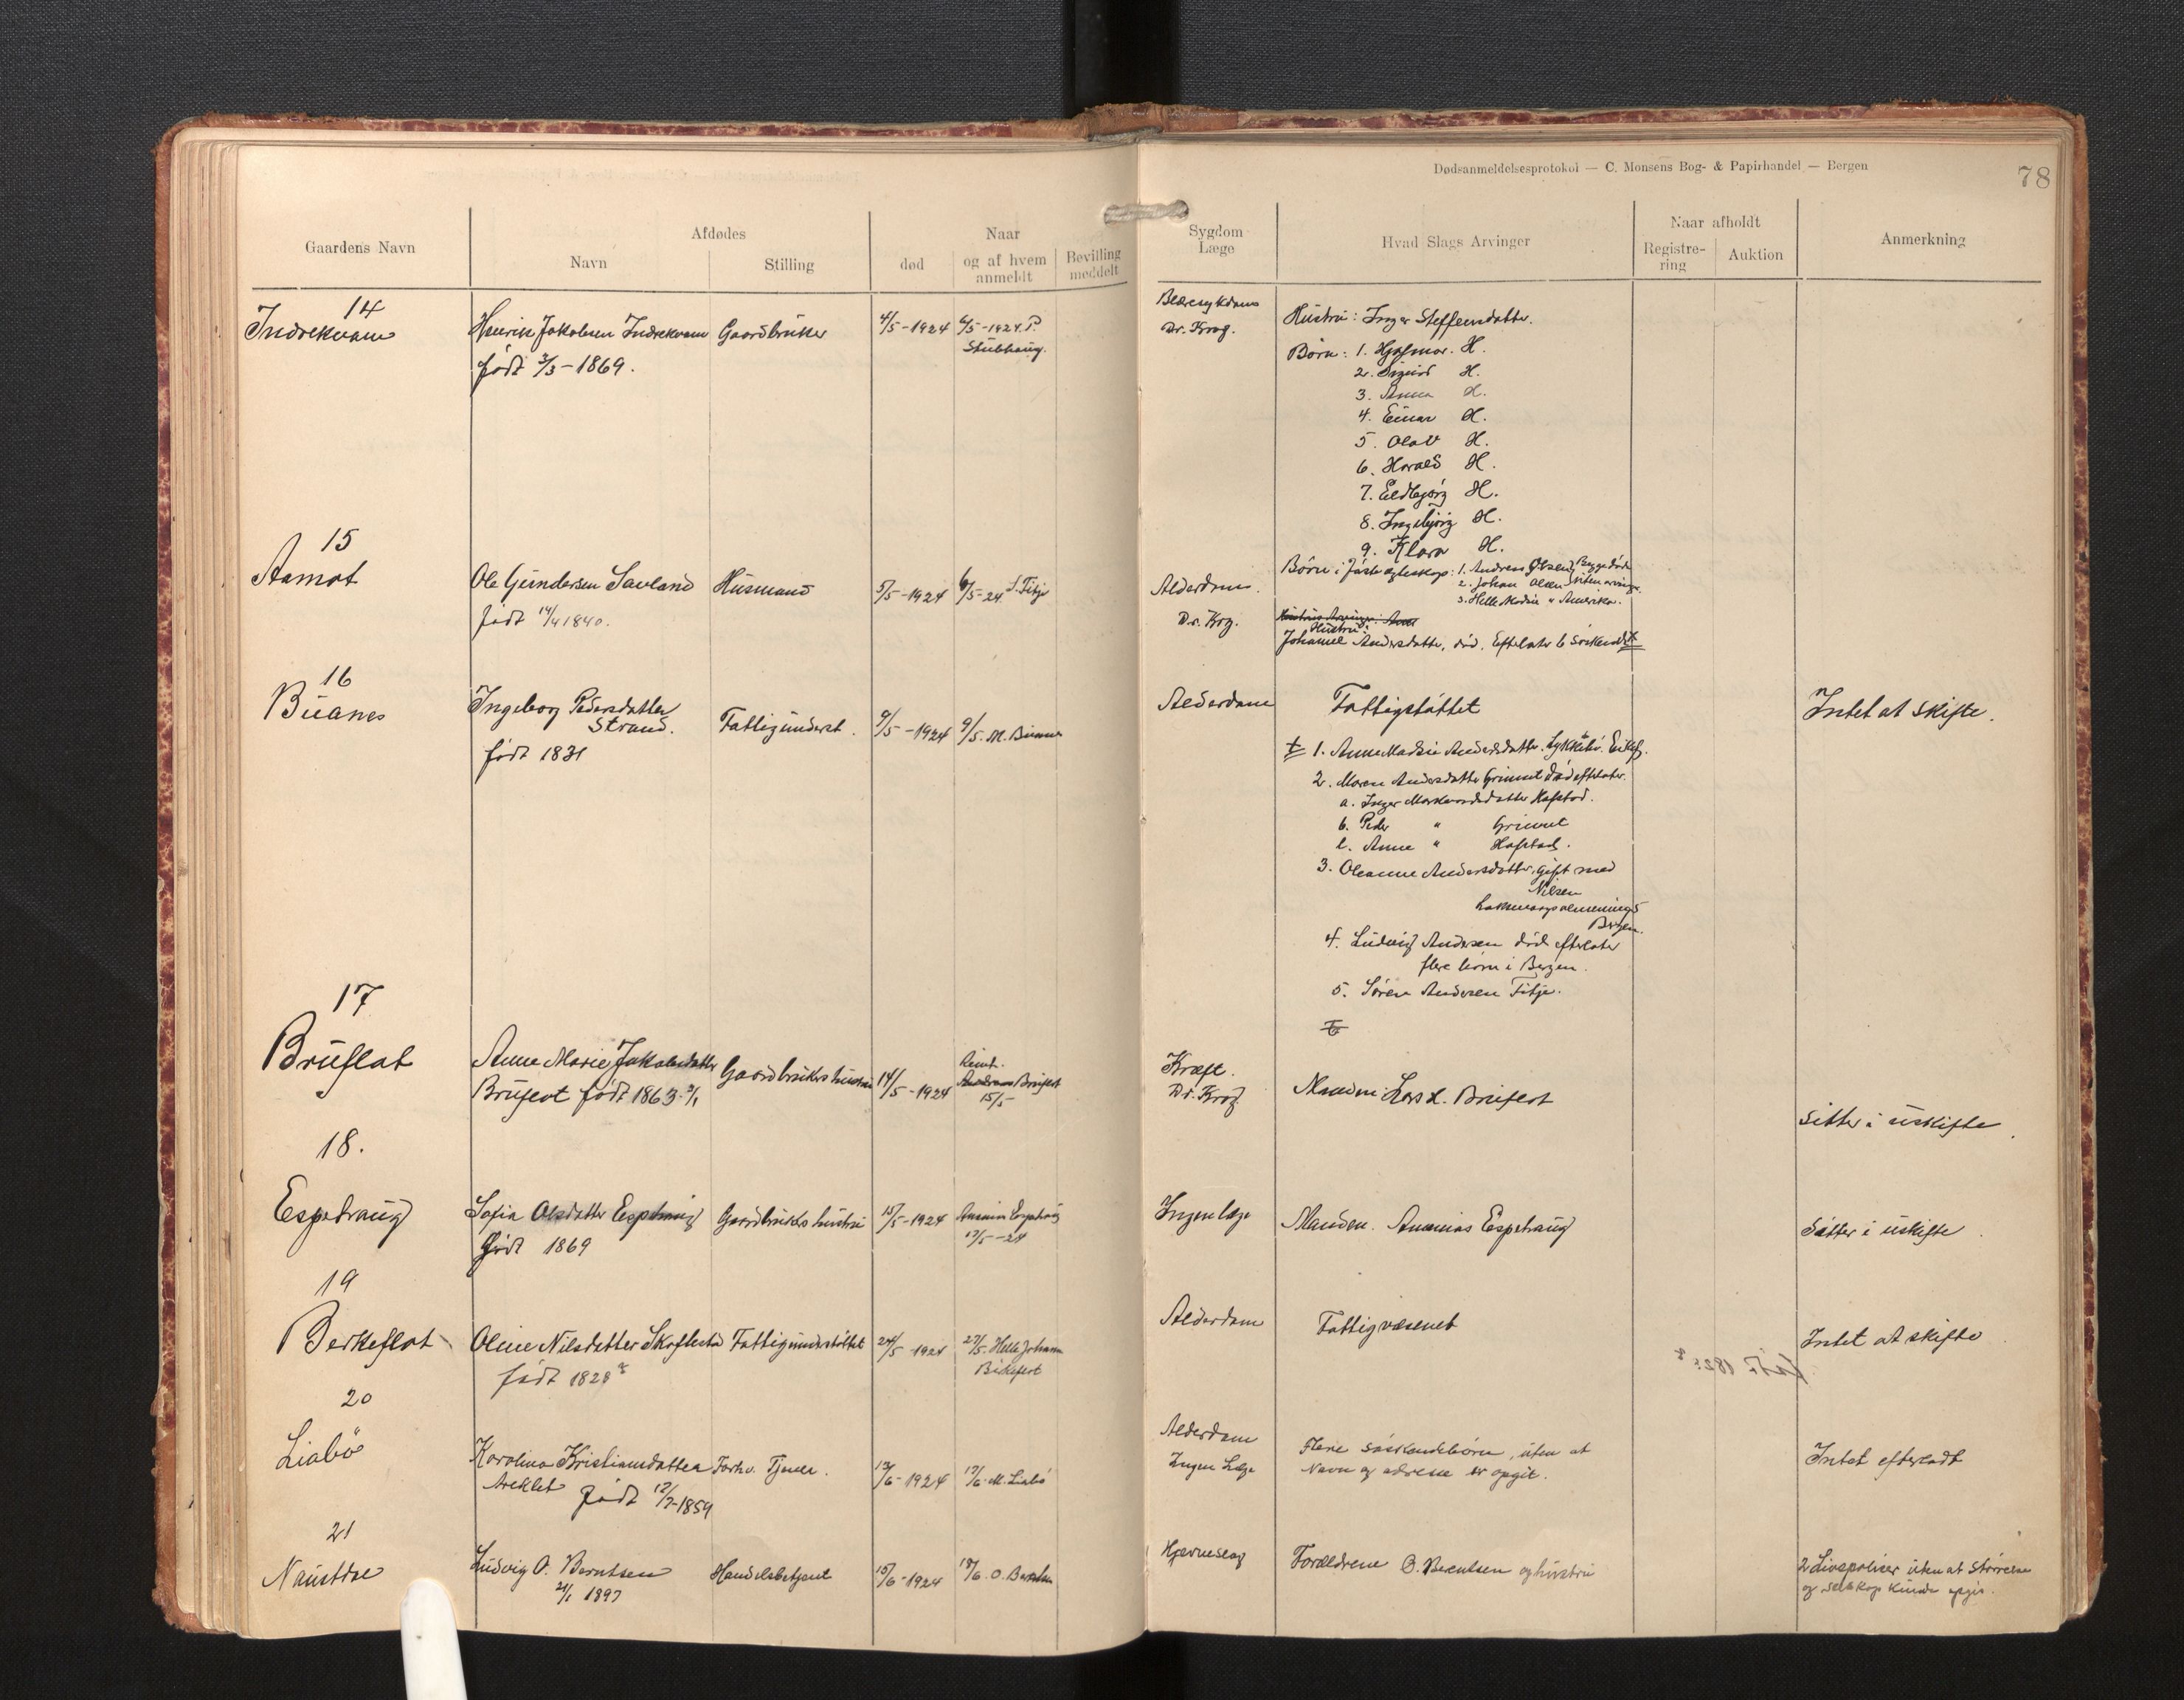 Dødsanmeldelsesprotokol — C. Monsens Bog- & Papirhandel — Bergen
78
Gaardens Navn
Afdødes
Navn
Stilling
Naar
død
og af hvem
anmeldt
Bevilling
meddelt
Sygdom
Læge
Hvad Slags Arvinger
Naar afholdt
Registre-
ring
Auktion
Anmerkning
14
Indrekvam
Henrik Jakobsen Indrekvam
født 3/3-1869.
Gaardbruker
4/5-1924
6/5-1924. P.
Stubhaug.
Blæresykdom
Dr. Krog.
Hustru: Inger Steffensdatter.
Børn: 1. Hjalmar. H.
2. Sigurd H.
3. Anna H.
4. Einar H.
5. Olav H.
6. Harald H.
7. Eldbjørg H.
8. Ingebjørg H.
9. Klara H.
15
Aamot
Ole Gundersen Savland
født 14/4 1840.
Husmand
5/5-1924
6/5-24. S. Fitje
Alderdom.
Dr. Krog.
Børn i første egteskap: 1. Andreas Olsen, Begge døde
2. Johan Olsen uten arvinger.
3. Helle Madsie " Amerika.
Hustru:
Johanne Andersdatter, død. Efterlater 6 søskende
16
Buanes
Ingeborg Pedersdatter
Strand.
født 1831
Fattigunderst.
9/5-1924
9/5. M. Buanes
Alderdom
Fattigstøttet
1. Anne Madsie Andersdatter
2. Maren Andersdatter Grimset død efterlater.
a. Inger Markvardsdatter Hafstad.
b. Peder " Grimset
c. Anne " Hafstad.
3. Oleanne Andersdatter, gift med
Nilsen
Bergen.
4. Ludvig Andersen død efterlater
flere børn i Bergen.
5. Søren Andersen Fitje.
6
Intet at skifte.
17
Bruflat
Anne Marie Jakobsdatter
Bruflot født 1863
Gaardbrukers hustru
14/5-1924
Bruflot
15/5
Kræft.
Dr. Krog.
Manden: Lars L. Bruflot
sitter i uskifte.
18.
Espehaug
Sofia Olsdatter Espehaug
født 1869
Gaardbrukers hustru
15/5-1924
Ananias Espehaug
17/5-24
Ingen læge
Manden. Ananias Espehaug
Sitter i uskifte.
19
Berkeflot
Oline Nilsdatter Skaflestad
født 1828?
Fattigunderstøttet
24/5-1924
27/5. Helle Johanne
Birkeflot
Alderdom
Fattigvæsenet
Intet at skifte
20
Liabö
Karolina Kristiansdatter
født 12/7-1859
Forhv. Tjener.
12/6-1924
17/6. M. Liabö
Alderdom
Ingen Læge
Flere søskendebørn, uten at
Navn og adresse er opgit.
Intet efterladt
21
Naustdal
Ludvig O. Berntsen
21/1 1897
Handelsbetjent
15/6-1924
18/6. O. Berntsen
Hjerneslag
Forældrene O. Berentsen og hustru
2 Livspoliser uten at Størrelse
og selskap kunde opgis.